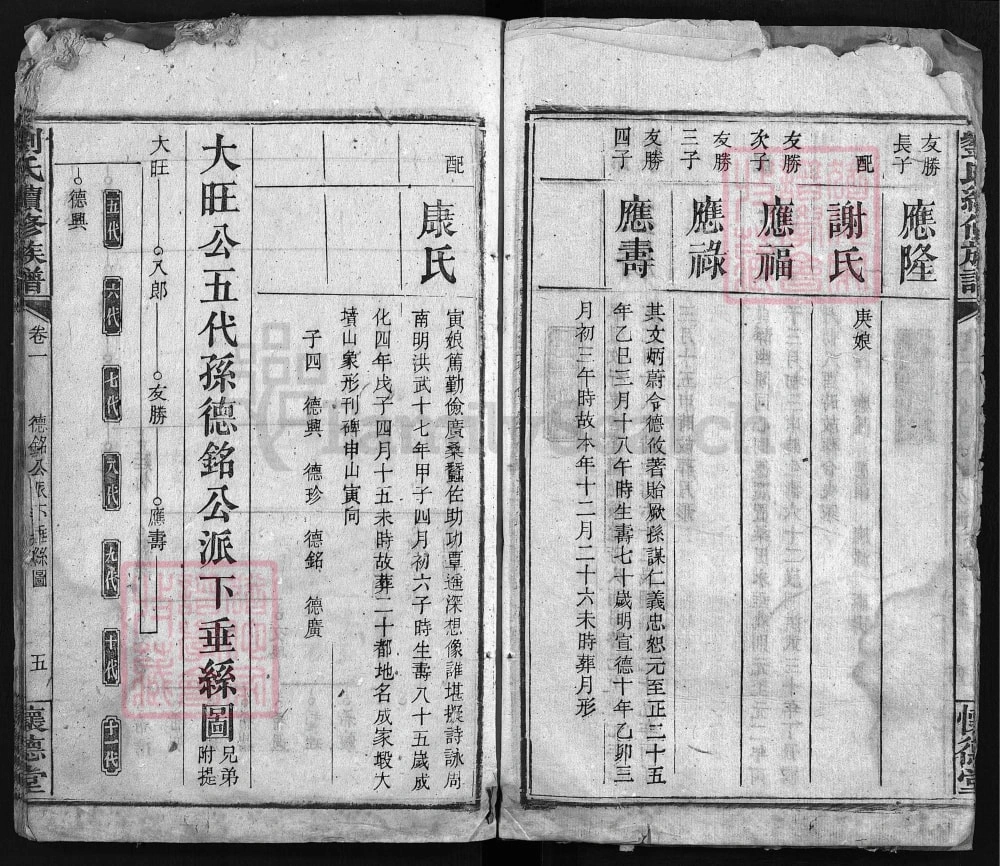 友勝
長子
應隆
配
謝氏
庚娘
友勝
次子
應福
友勝
三子
應祿
友勝
四子
應壽
其文炳蔚令德攸著貽厥孫謀仁義忠恕元至正二十五
年乙巳三月十八午時生壽七十歲明宣德十年乙卯三
月初三午時故本年十二月二十六未時葬月形
配
康氏
寅娘篤勤儉廣桑蠶佐助功覃遙深想像誰堪擬詩詠周
南明洪武十七年甲子四月初六子時生壽八十五歲成
化四年戊子四月十五未時故葬二十都地名成家塅大
墳山象形刊碑申山寅向
子四 德興 德珍 德銘 德廣
大旺公五代孫德銘公派下垂絲圖
兄弟
附提
大旺 八郎 友勝 應壽
五代 六代 七代 八代 九代 十代 十一代
德興
劉氏續修族譜 卷一 德銘公派下垂絲圖 五 懷德堂